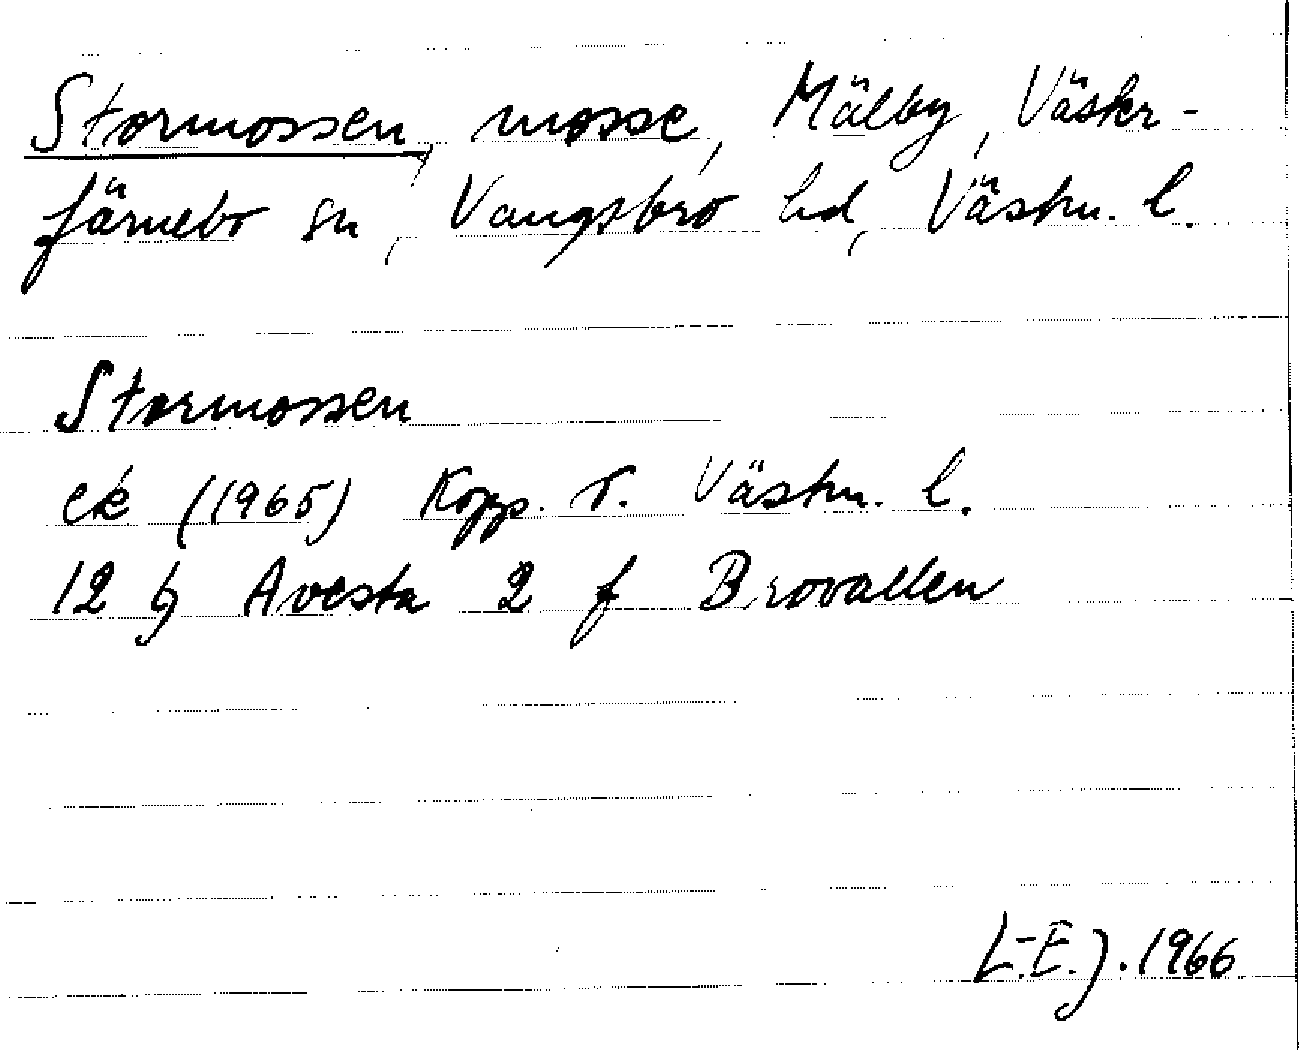 Stormossen, mosse, Mälby, Väster-
färnebo sn, Vangsbro hd, Västm. l.
Stormossen
ek (1965) Kopp. o. Västm. l.
12 g Avesta 2 f Brovallen
L-E.J. 1966